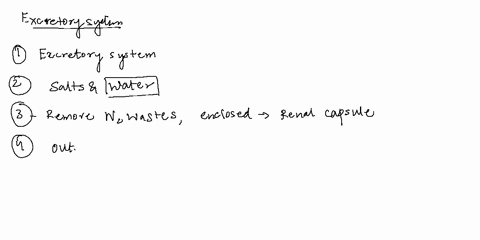 Excretory system
① Excretory system
② Salts & water
③ - Remove N2 wastes, enclosed → Renal capsule
④ out.